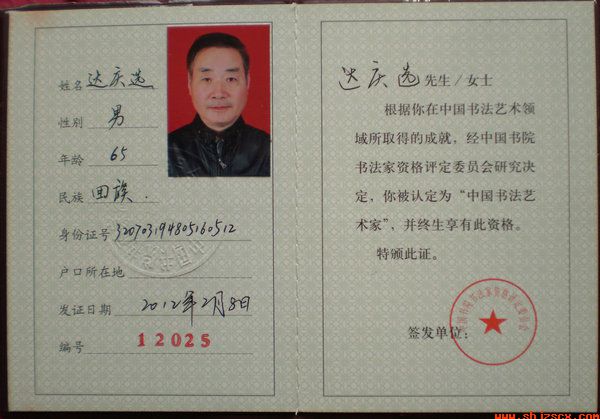 姓名 达庆选
性别 男
年龄 65
民族 回族.
身份证号 320703194805160512
户口所在地
发证日期 2012年2月8日
编号 12025
达庆选 先生/女士
根据你在中国书法艺术领
域所取得的成就,经中国书院
书法家资格评定委员会研究决
定,你被认定为“中国书法艺
术家”,并终生享有此资格。
特颁此证。
签发单位:
中国书院书法家资格评定委员会
www.shjzscx.com